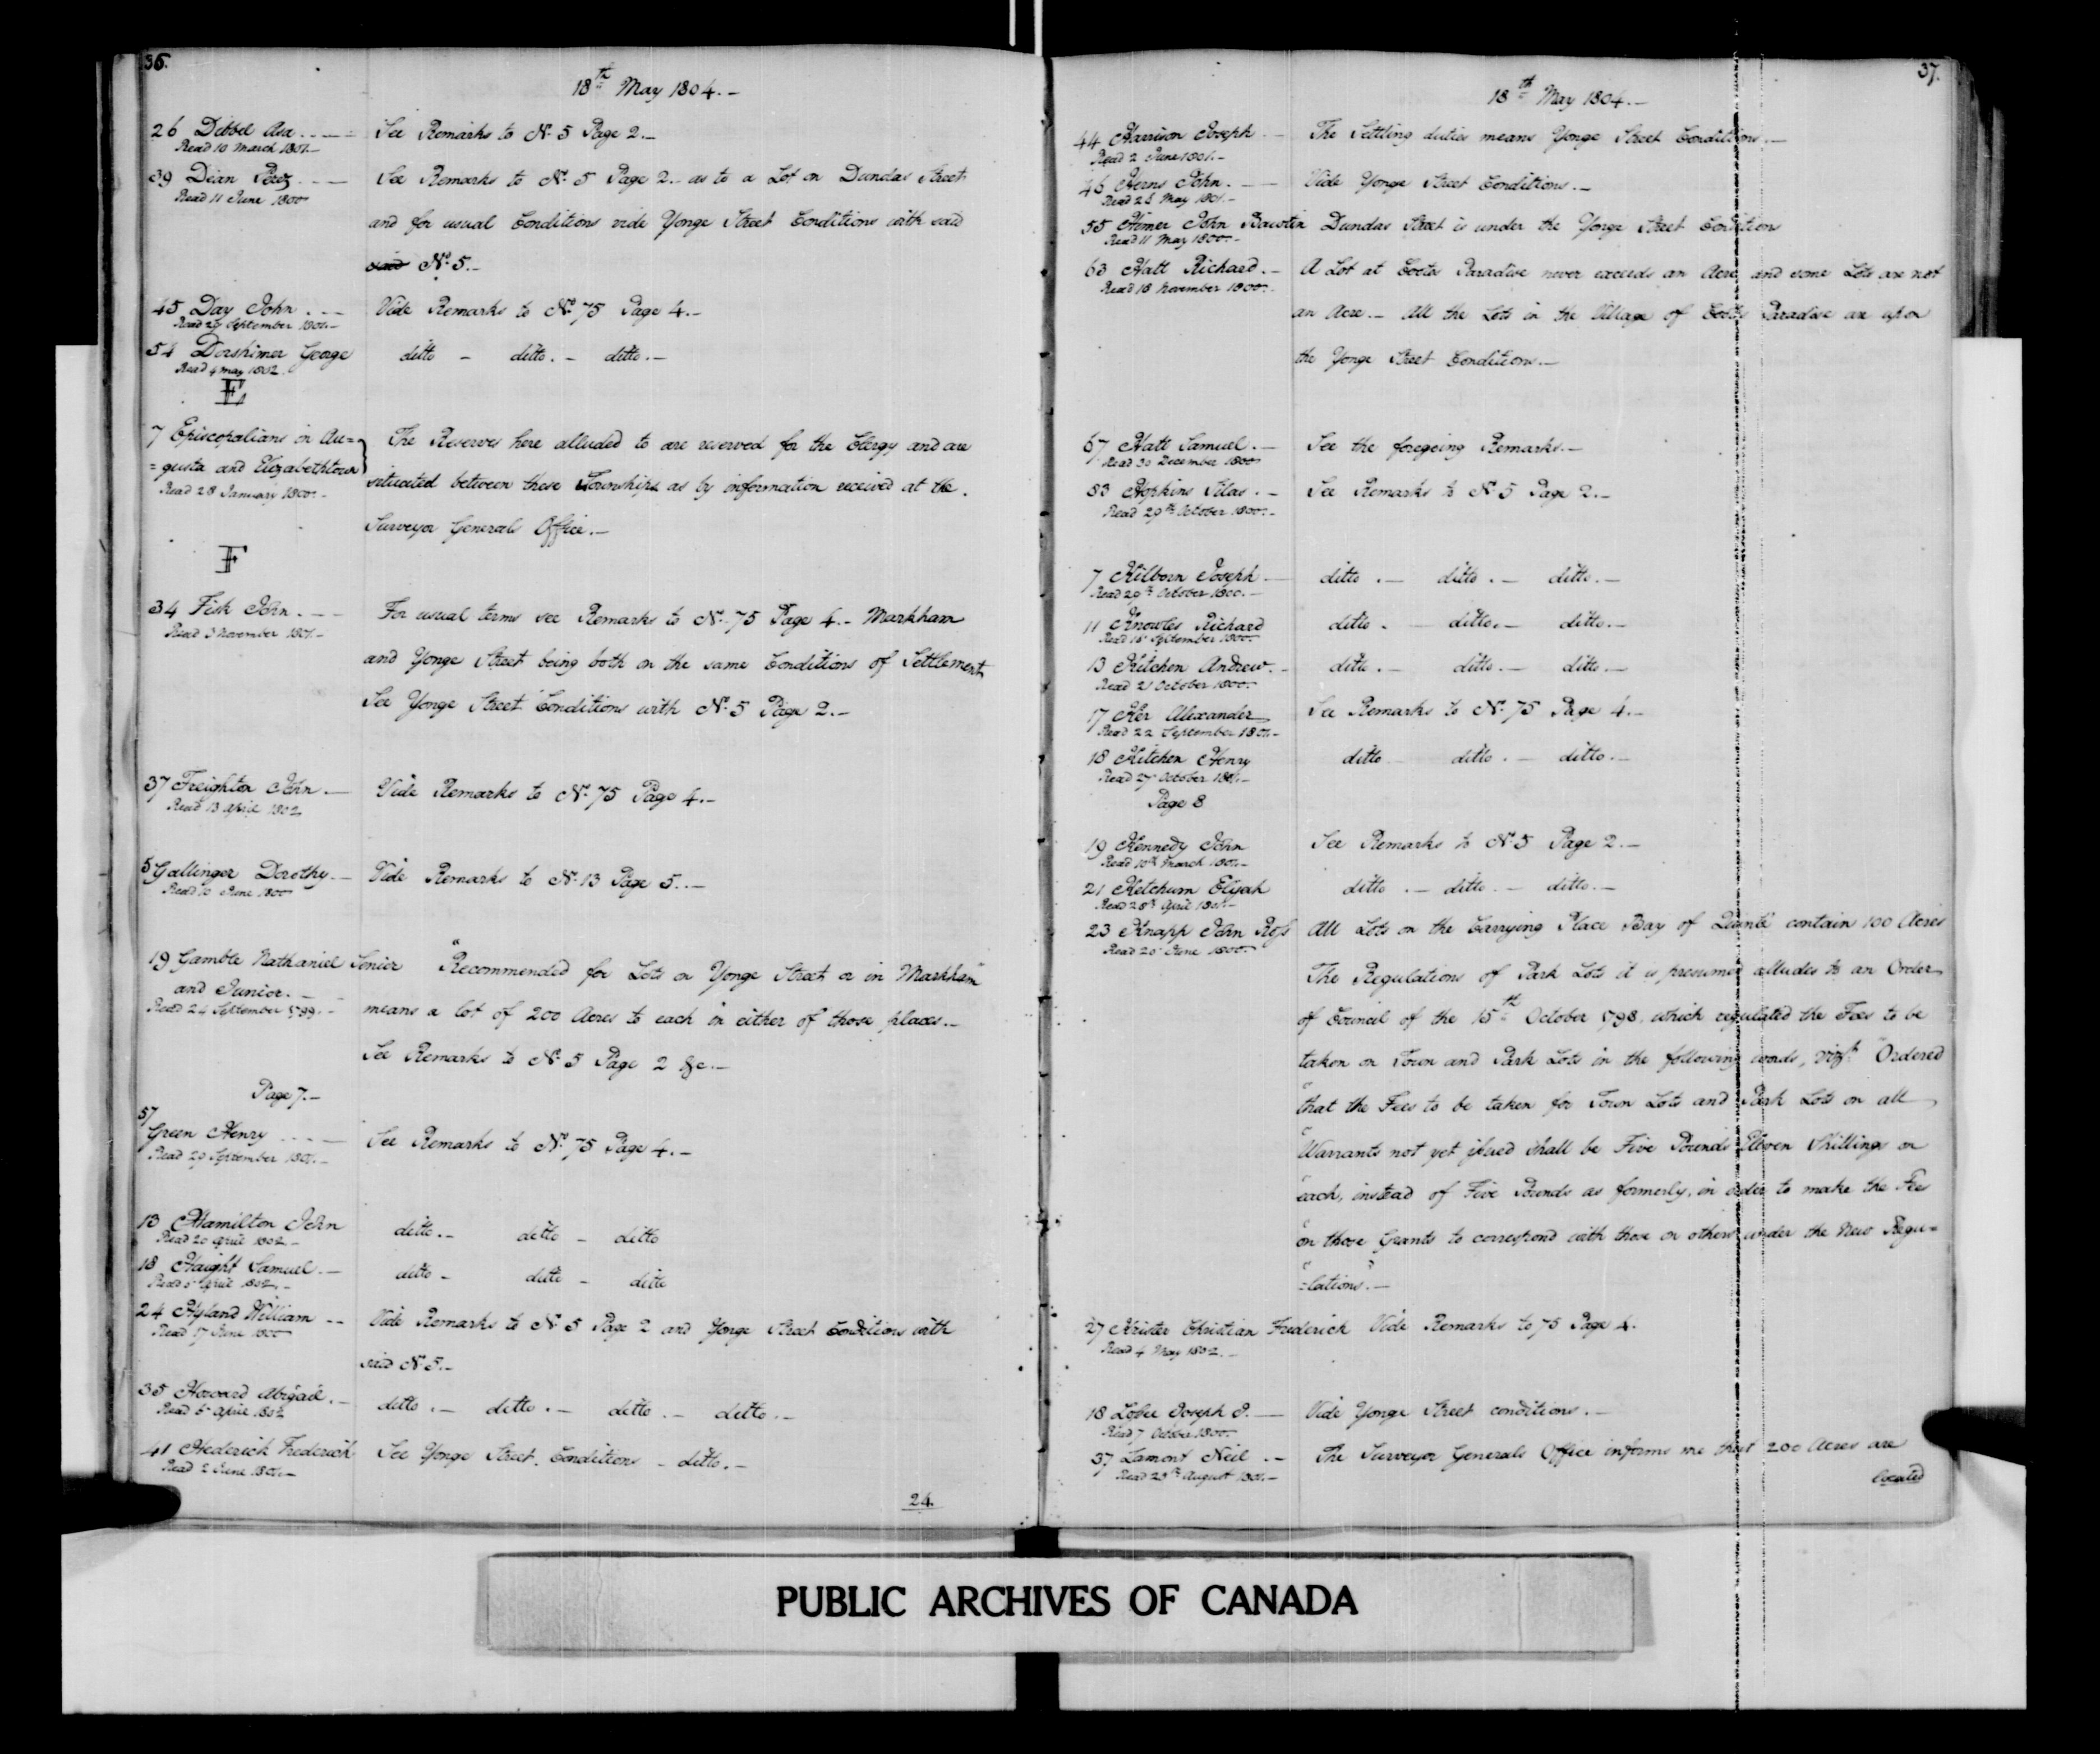 36.
18th May 1804.-
26 Dibbel Asa ---- See Remarks to No. 5 Page 2.-
Read 10 March 1801.-
39 Dean Perez --- See Remarks to No. 5 Page 2.- as to a Lot on Dundas Street
Read 11 June 1800
and for usual Conditions vide Yonge Street Conditions with said
said No. 5.-
45 Day John . -- Vide Remarks to No. 75 Page 4.-
Read 29 September 1801.-
54 Dorshimer George ditto - ditto. - ditto.-
Read 4 May 1802.
E
7 Episcopalians in Au= The Reserves here alluded to are reserved for the Clergy and are
=gusta and Elizabethtown situated between these Townships as by information received at the.
Read 28 January 1800.-
Surveyor Generals Office.-
F
34 Fisk John. -- For usual terms see Remarks to No. 75 Page 4.- Markham
Read 3 November 1801.-
and Yonge Street being both on the same Conditions of Settlement
See Yonge Street Conditions with No. 5 Page 2.-
37 Freighton John.- Vide Remarks to No. 75 Page 4.-
Read 13 April 1802
5 Gallinger Dorothy.- Vide Remarks to No. 13 Page 5..-
Read 10 June 1800
19 Gamble Nathaniel Senior "Recommended for Lots on Yonge Street or in Markham"
and Junior. -
Read 24 September 1799.- means a lot of 200 Acres to each in either of those places.-
See Remarks to No. 5 Page 2 &c.-
Page 7.-
57
Green Henry ---- See Remarks to No. 75 Page 4.-
Read 29 September 1801.-
13 Hamilton John ditto.- ditto - ditto
Read 20 April 1802.-
18 Haight Samuel.- ditto - ditto - ditto
Read 5 April 1802.-
24 Hyland William -- Vide Remarks to No. 5 Page 2 and Yonge Street Conditions with
Read 17 June 1800
said No. 5.-
35 Howard Abigail.- ditto.- ditto.- ditto.- ditto.-
Read 5 April 1802
41 Hederick Frederick See Yonge Street Conditions - ditto.-
Read 2 June 1801.-
24.
37.
18th May 1804.-
44 Harrison Joseph - The Settling duties means Yonge Street Conditions.-
Read 2 June 1801.-
46 Herns John. -- Vide Yonge Street Conditions.-
Read 26 May 1801.-
55 Himer John Bawtin Dundas Street is under the Yonge Street Conditions
Read 11 May 1800.-
63 Hatt Richard.- A Lot at Coots Paradise never exceeds an Acre and some Lots are not
Read 18 November 1800.
an Acre.- All the Lots in the Village of Coots Paradise are upon
the Yonge Street Conditions.-
67 Hatt Samuel.- See the foregoing Remarks.-
Read 30 December 1800
83 Hopkins Silas.- See Remarks to No. 5 Page 2.-
Read 29th October 1800.-
7 Kilborn Joseph - ditto.- ditto.- ditto.-
Read 29th October 1800.-
11 Knowles Richard ditto. - ditto.- ditto.-
Read 16 September 1800.
13 Kitchen Andrew.- ditto.- ditto.- ditto.-
Read 21 October 1800.
17 Ker Alexander See Remarks to No. 75 Page 4.-
Read 22 September 1801.-
18 Kitchen Henry ditto - ditto.- ditto.-
Read 27 October 1801.-
Page 8
19 Kennedy John See Remarks to No. 5 Page 2.-
Read 10th March 1801.-
21 Ketchum Elijah ditto.- ditto.- ditto.-
Read 28th April 1801.-
23 Knapp John Ross All Lots on the Carrying Place Bay of Quinté contain 100 Acres
Read 20 June 1800.
The Regulations of Park Lots it is presumed alludes to an Order
of Council of the 15th October 1798, which regulated the Fees to be
taken on Town and Park Lots in the following words, vizt. "Ordered
"that the Fees to be taken for Town Lots and Park Lots on all
"Warrants not yet issued shall be Five Pounds Eleven Shillings on
"each, instead of Five Pounds as formerly, in order to make the Fees
"on those Grants to correspond with those on others under the New Regu=
"=lations."-
27 Krister Christian Frederick Vide Remarks to 75 Page 4.
Read 4 May 1802.-
18 Lobee Joseph J. - Vide Yonge Street conditions.-
Read 7 October 1800.
37 Lamont Neil .- The Surveyor Generals Office informs me that 200 Acres are
Read 29th August 1801.-
located
PUBLIC ARCHIVES OF CANADA